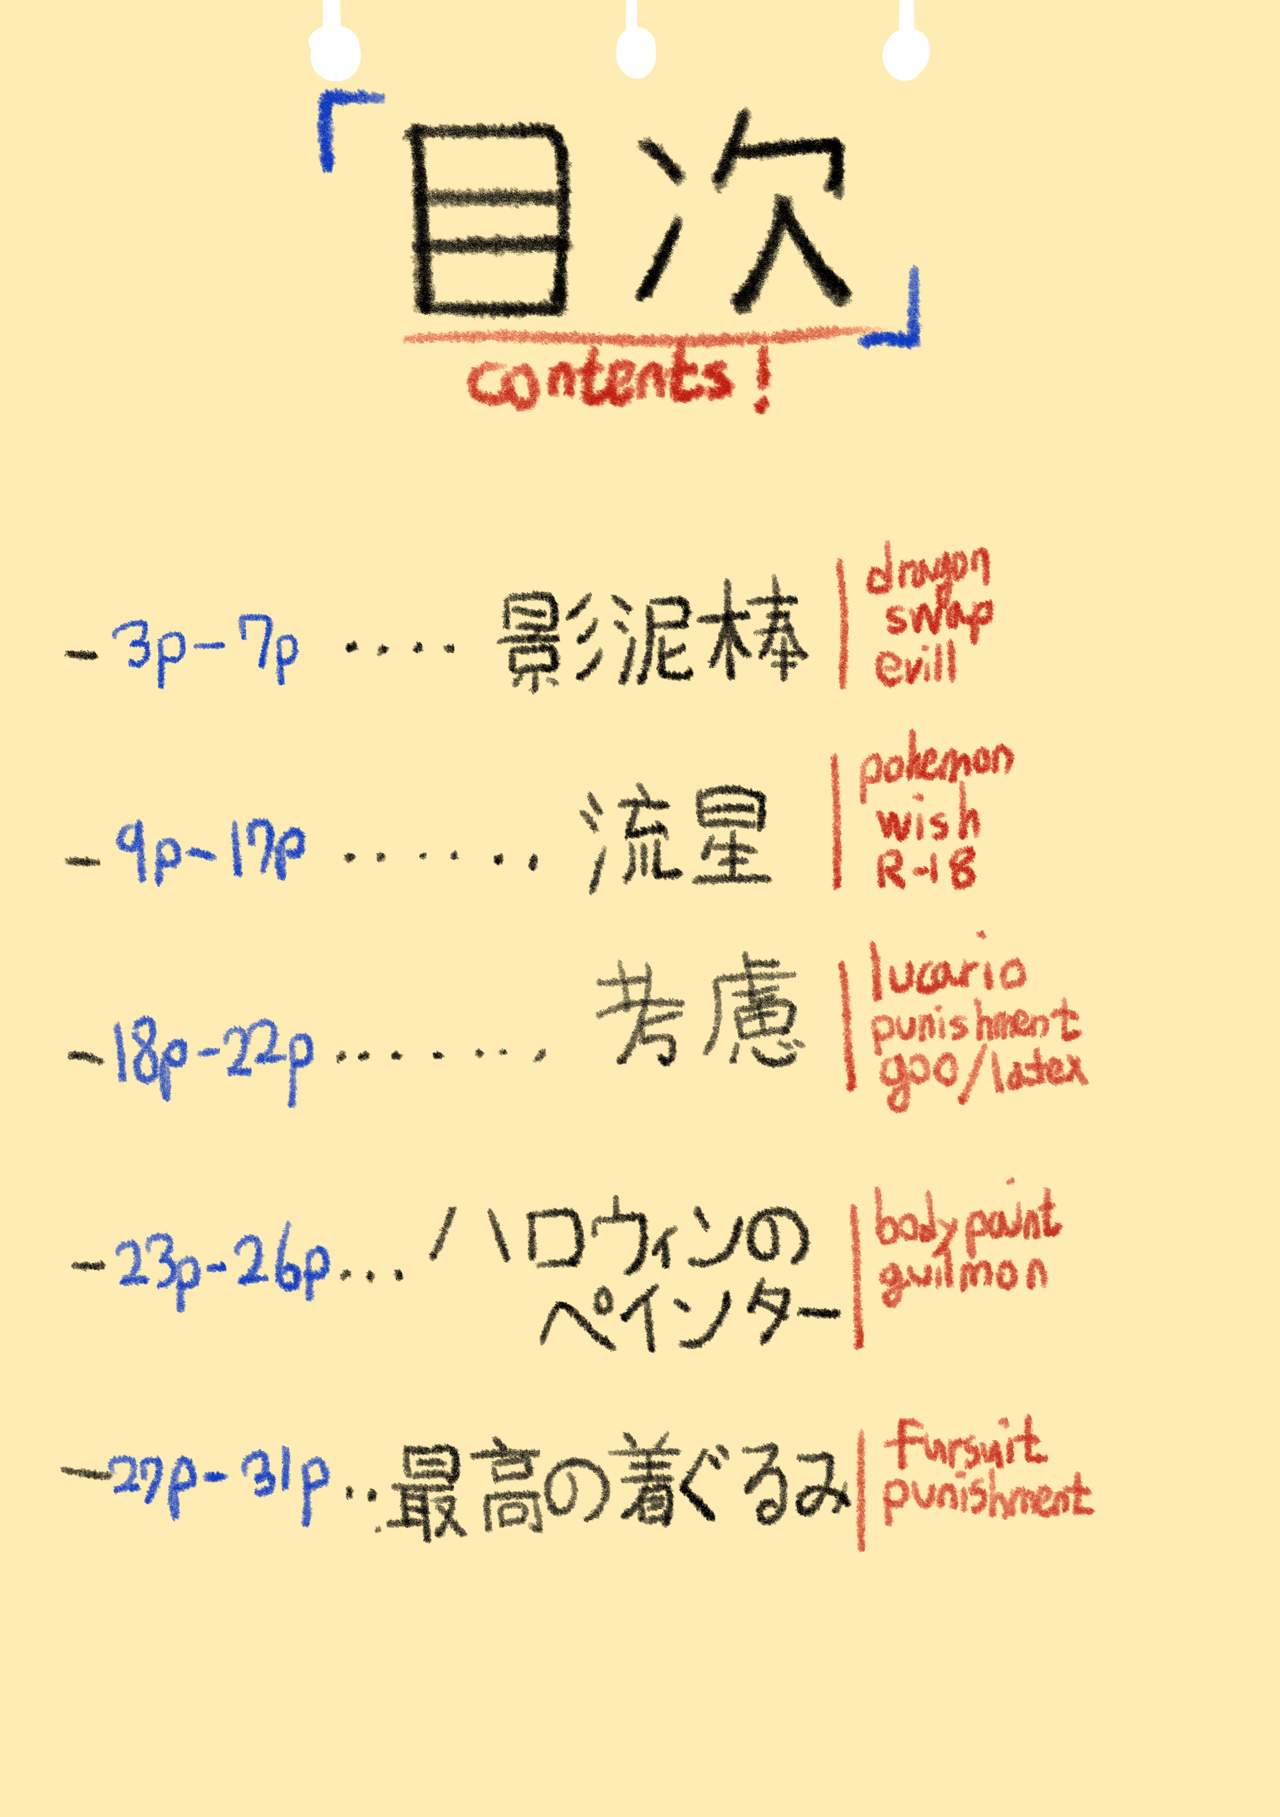 「目次」
contents!
- 3p-7p .... 影泥棒
dragon
swap
evill
- 9p-17p ...... 流星
pokemon
wish
R-18
- 18p-22p ....... 考慮
lucario
punishment
goo/latex
- 23p-26p ... ハロウィンの
ペインター
body paint
guilmon
- 27p-31p ... 最高の着ぐるみ
fursuit
punishment